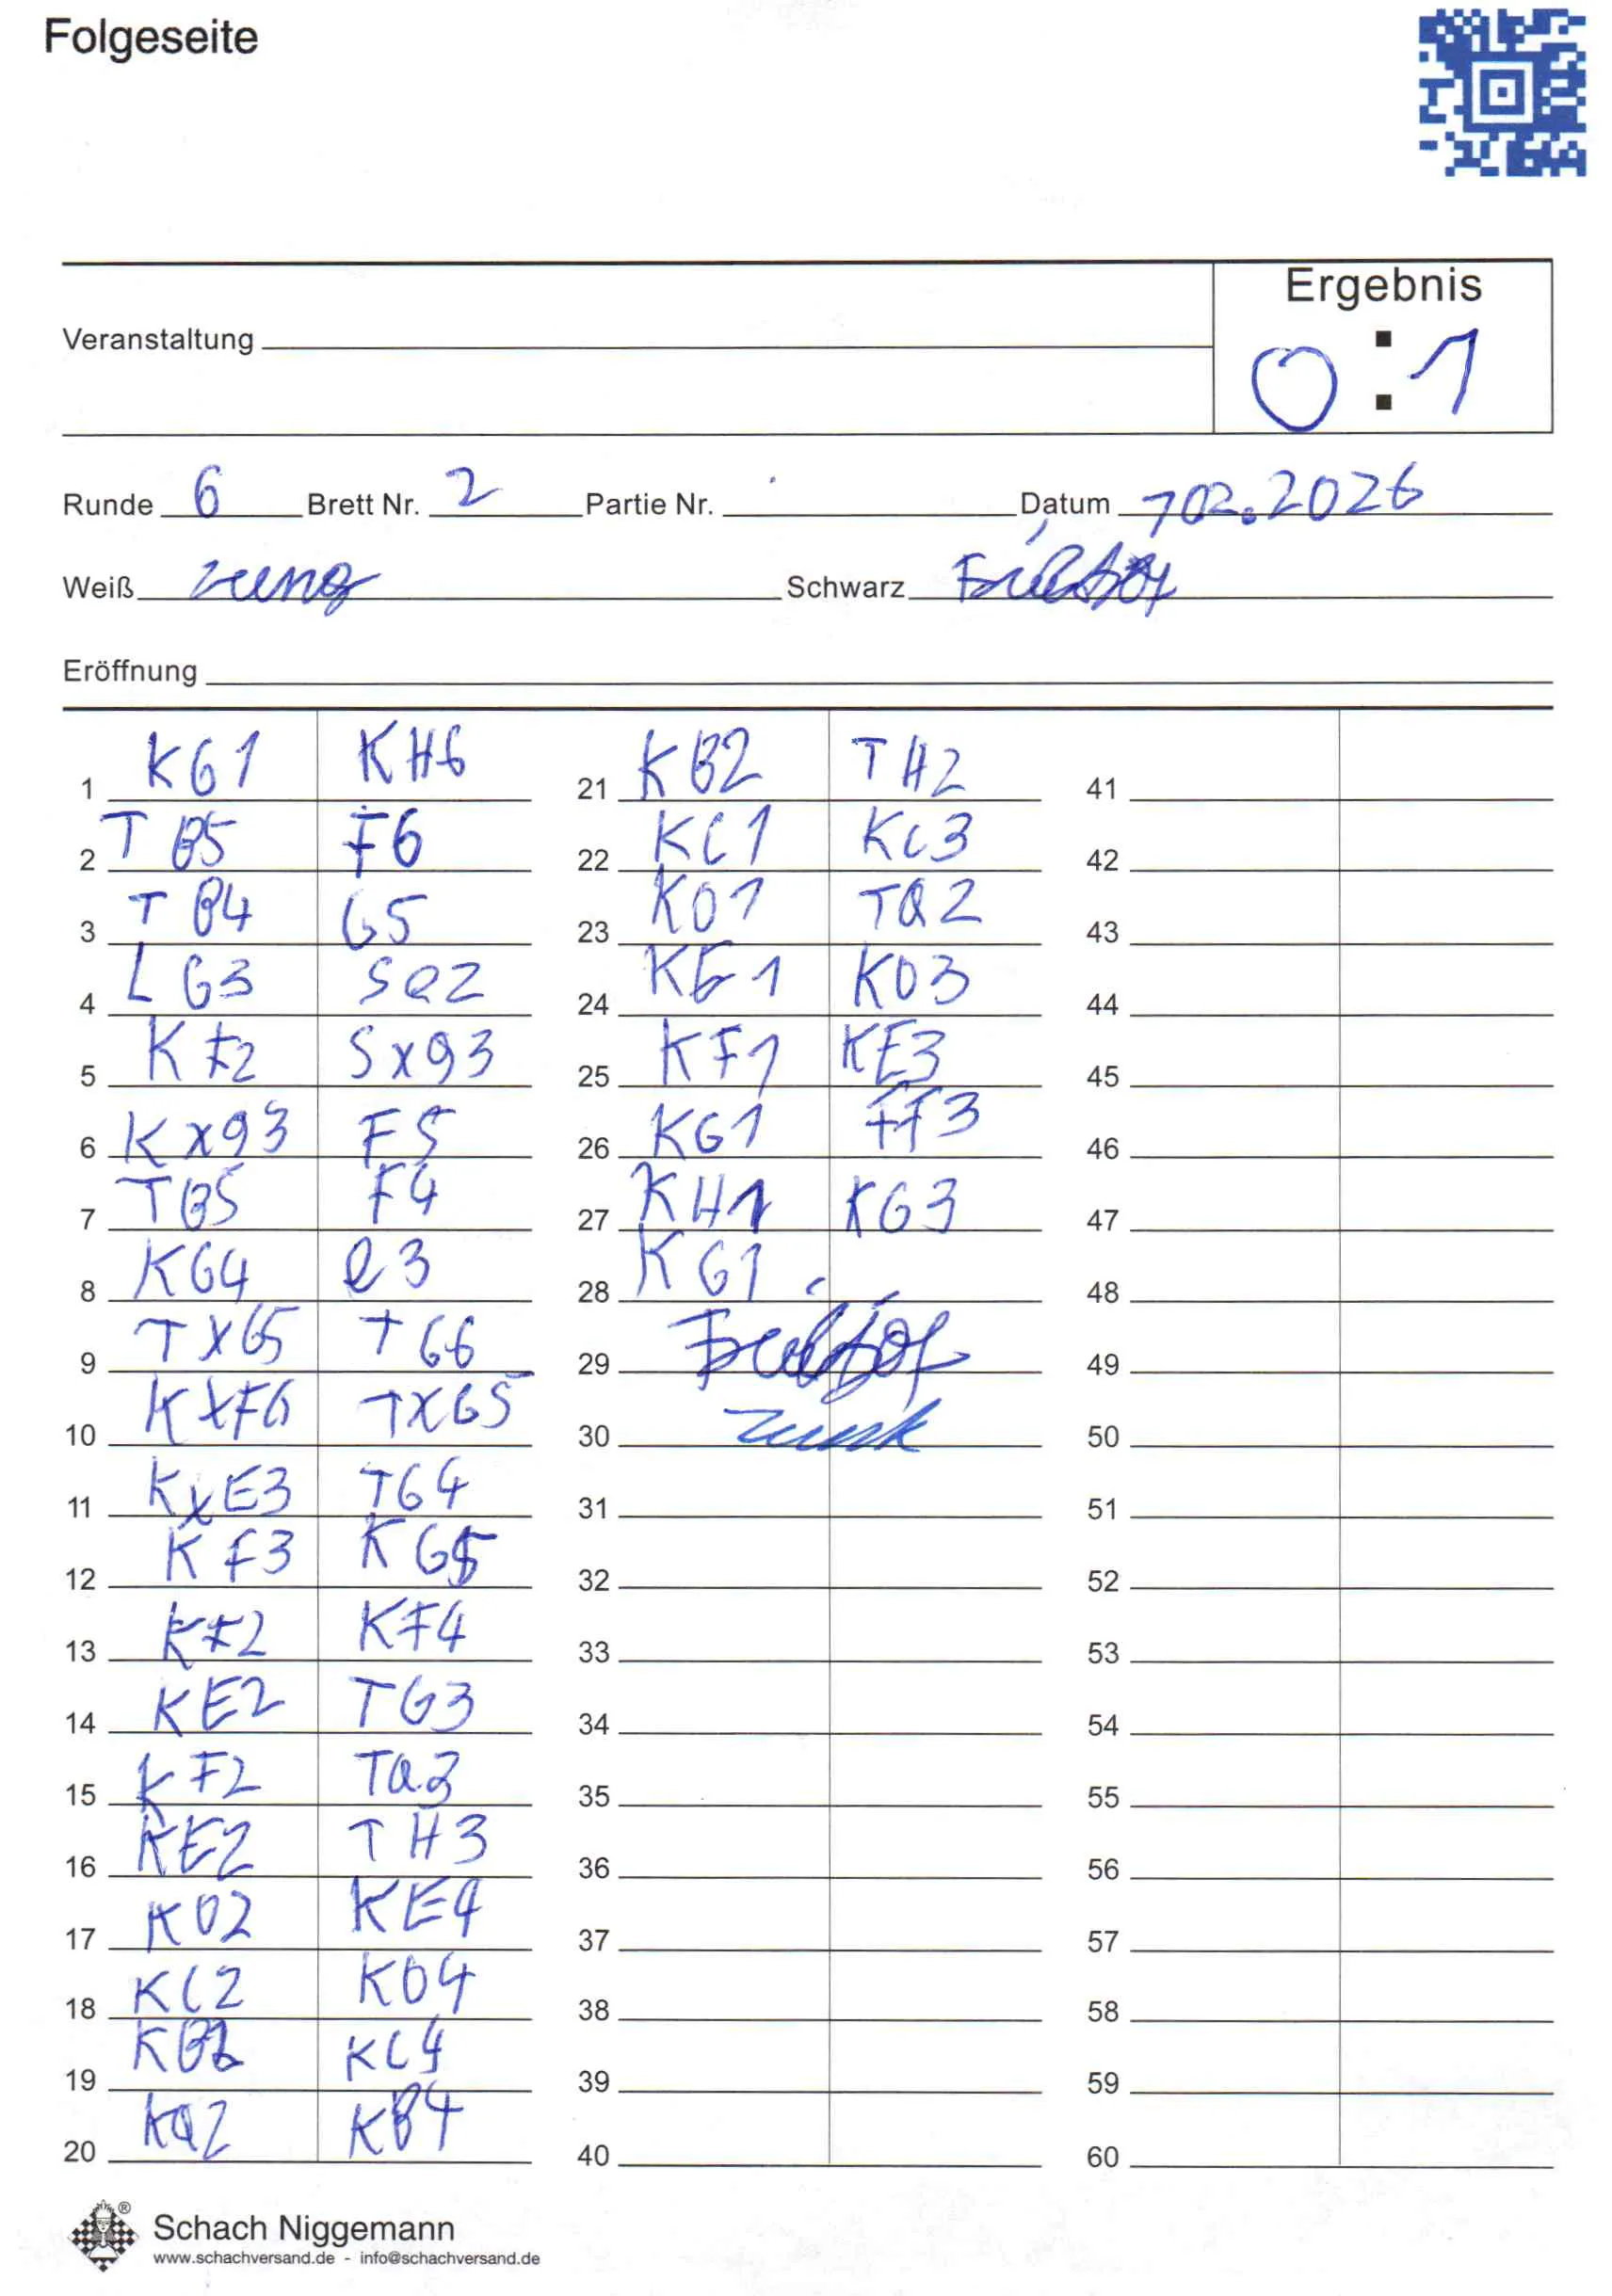 Folgeseite
Ergebnis
Veranstaltung
0 : 1
Runde 6 Brett Nr. 2 Partie Nr. Datum 702.2026
Weiß Schwarz
Eröffnung
1 KG1 KH6
2 TB5 F6
3 TB4 G5
4 LG3 Se2
5 KF2 Sxg3
6 Kxg3 F5
7 TB5 F4
8 KG4 e3
9 TXG5 TG6
10 KXF4 TXG5
11 KxE3 TG4
12 KF3 KG5
13 KF2 KF4
14 KE2 TG3
15 KF2 Ta3
16 KE2 TH3
17 KD2 KE4
18 KC2 KD4
19 KB2 KC4
20 Ka2 KB4
21 KB2 TH2
22 KC1 KC3
23 KD1 Ta2
24 KE1 KD3
25 KF1 KE3
26 KG1 KF3
27 KH1 KG3
28 KG1
29
30
31
32
33
34
35
36
37
38
39
40
41
42
43
44
45
46
47
48
49
50
51
52
53
54
55
56
57
58
59
60
® Schach Niggemann
www.schachversand.de - info@schachversand.de